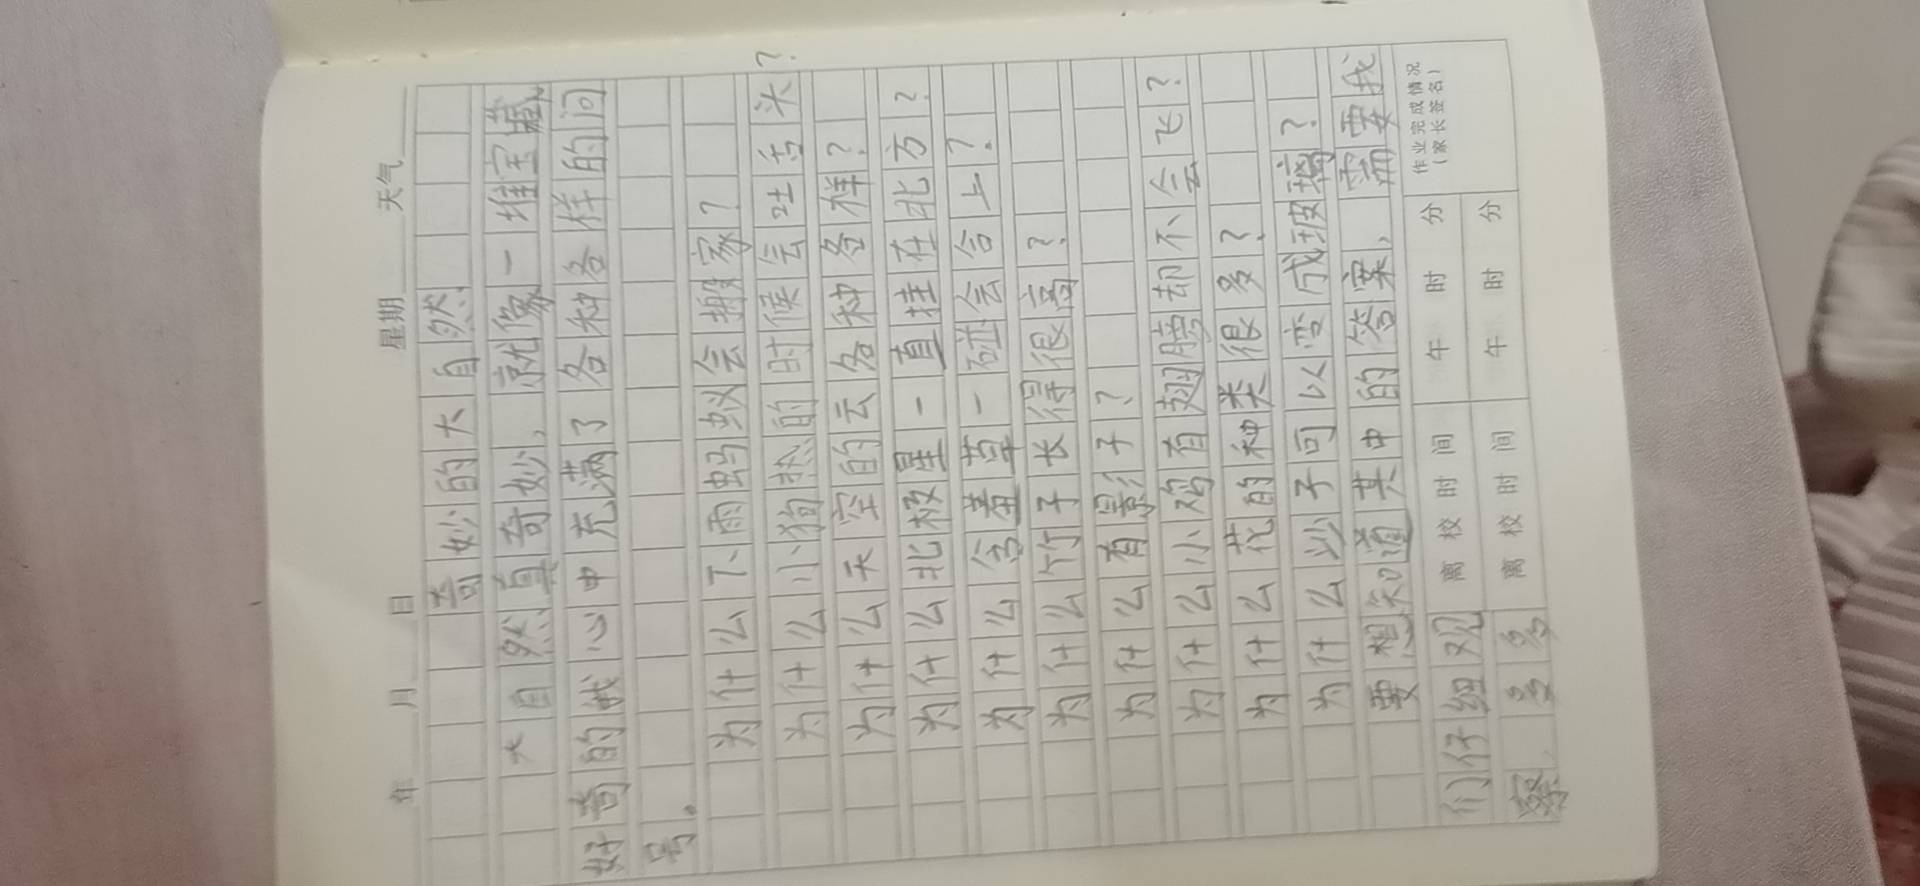 年 月 日 星期 天气
奇妙的大自然
大自然真奇妙，就像一堆宝藏，
好奇的我心中充满了各种各样的问
号。
为什么下雨蚂蚁会搬家？
为什么小狗热的时候会吐舌头？
为什么天空的云各种各样？
为什么北极星一直挂在北方？
为什么含羞草一碰会合上？
为什么竹子长得很高？
为什么有影子？
为什么小鸡有翅膀却不会飞？
为什么花的种类很多？
为什么沙子可以变成玻璃？
要想知道其中的答案，需要我
们仔细观 离校时间 午 时 分 作业完成情况
察， 多多 离校时间 午 时 分 （家长签名）